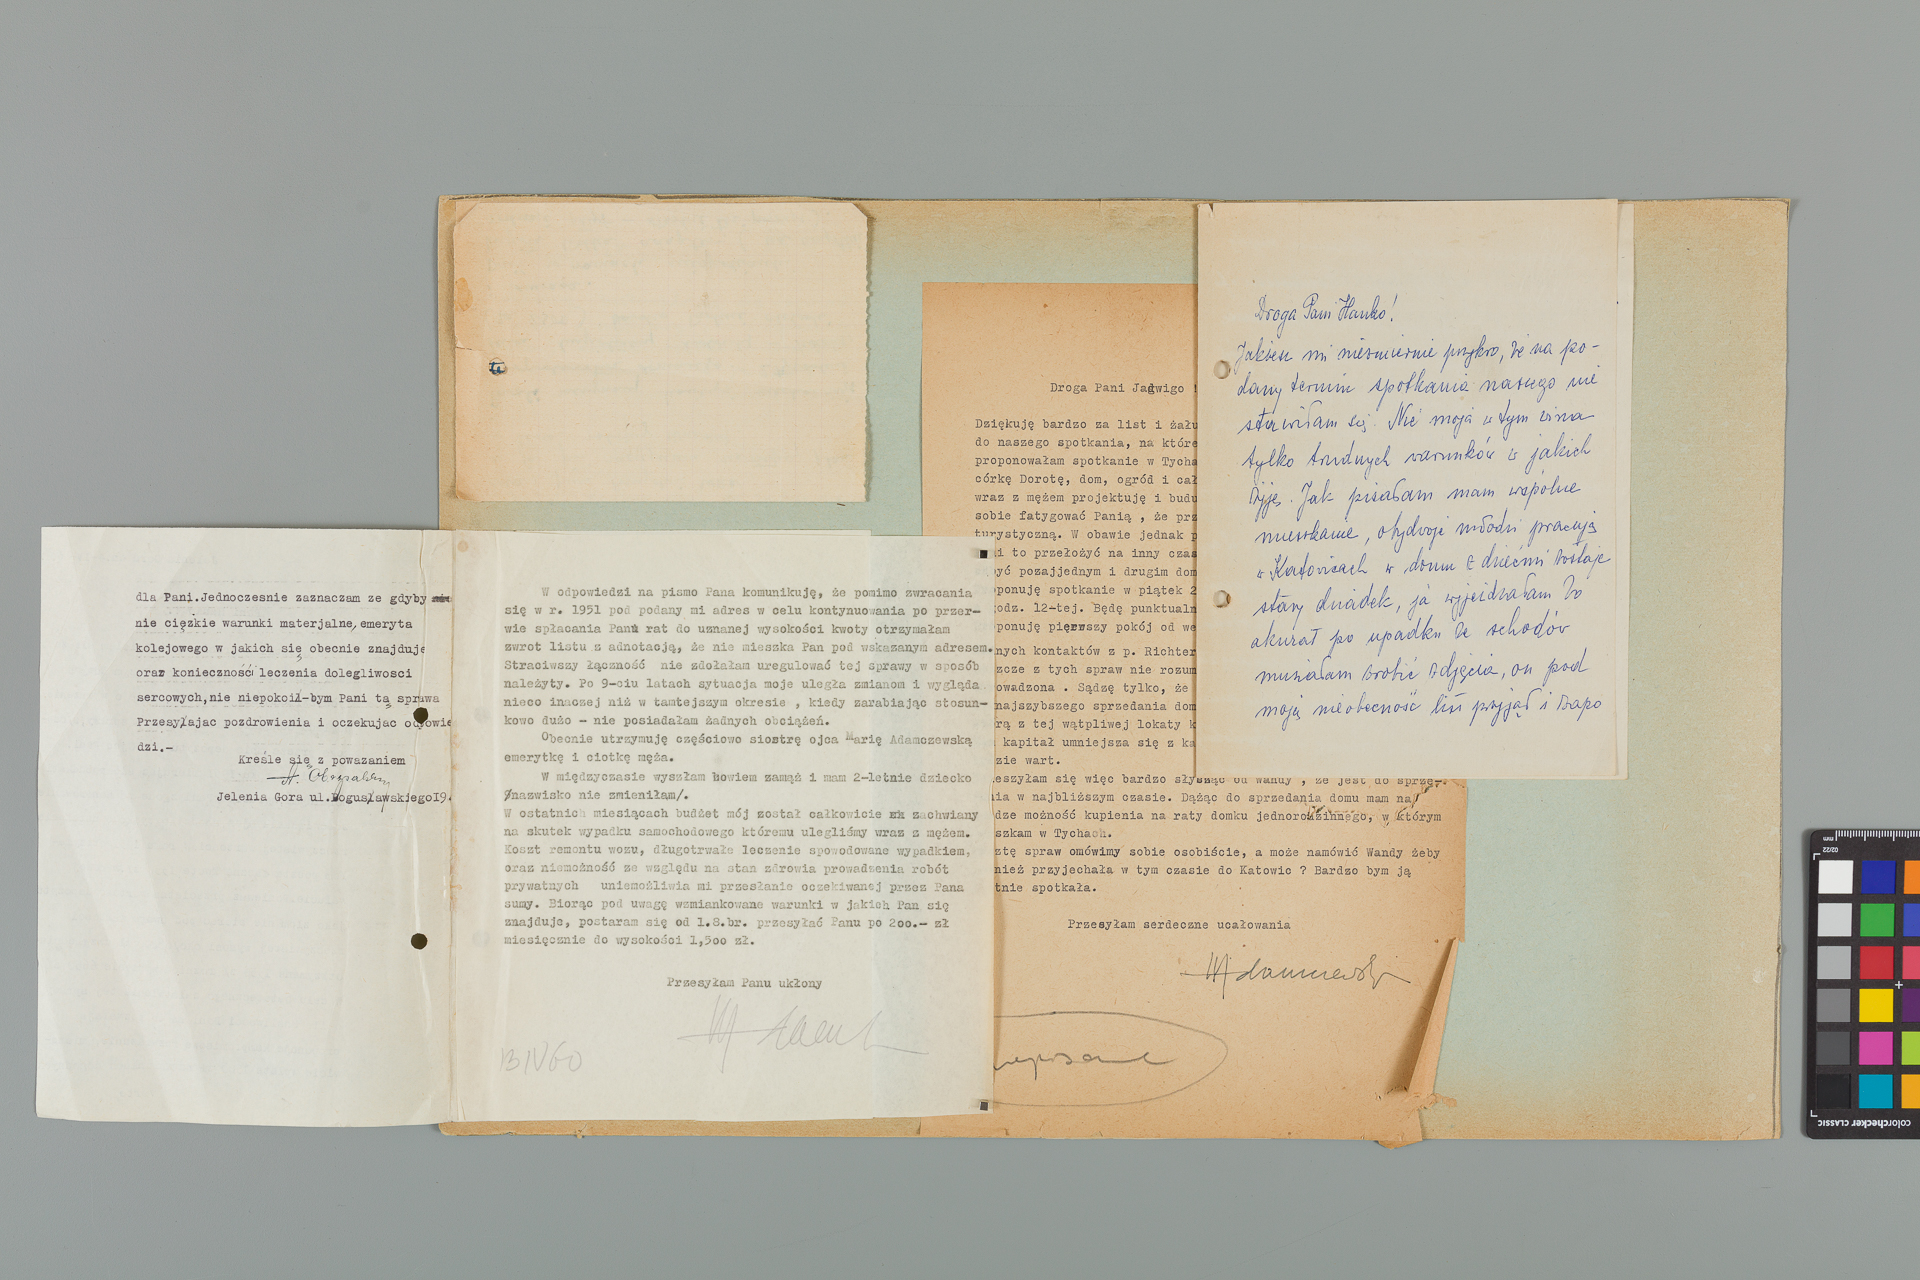 dla Pani.Jednoczesnie zaznaczam ze gdyby
nie ciężkie warunki materjalne,emeryta
kolejowego w jakich się obecnie znajduje
oraz konieczność leczenia dolegliwosci
sercowych,nie niepokoił-bym Pani tą sprawa
Przesyłajac pozdrowienia i oczekujac odpowie
dzi.-
Kreśle się z powazaniem
Jelenia Gora ul.Bogusławskiego19.
W odpowiedzi na pismo Pana komunikuję, że pomimo zwracania
się w r. 1951 pod podany mi adres w celu kontynuowania po przer-
wie spłacania Panu rat do uznanej wysokości kwoty otrzymałam
zwrot listu z adnotacją, że nie mieszka Pan pod wskazanym adresem.
Straciwszy łączność nie zdołałam uregulować tej sprawy w sposób
należyty. Po 9-ciu latach sytuacja moje uległa zmianom i wygląda
nieco inaczej niż w tamtejszym okresie , kiedy zarabiając stosun-
kowo dużo - nie posiadałam żadnych obciążeń.
Obecnie utrzymuję częściowo siostrę ojca Marię Adamczewską
emerytkę i ciotkę męża.
W międzyczasie wyszłam bowiem zamąż i mam 2-letnie dziecko
/nazwisko nie zmieniłam/.
W ostatnich miesiącach budżet mój został całkowicie zachwiany
na skutek wypadku samochodowego któremu ulegliśmy wraz z mężem.
Koszt remontu wozu, długotrwałe leczenie spowodowane wypadkiem,
oraz niemożność ze względu na stan zdrowia prowadzenia robót
prywatnych uniemożliwia mi przesłanie oczekiwanej przez Pana
sumy. Biorąc pod uwagę wzmiankowane warunki w jakich Pan się
znajduje, postaram się od 1.8.br. przesyłać Panu po 200.- zł
miesięcznie do wysokości 1,500 zł.
Przesyłam Panu ukłony
13 IV 60
Droga Pani Jadwigo !
Dziękuję bardzo za list i żału
do naszego spotkania, na które
proponowałam spotkanie w Tycha
córkę Dorotę, dom, ogród i cał
wraz z mężem projektuję i budu
sobie fatygować Panią , że prz
turystyczną. W obawie jednak p
i to przełożyć na inny czas
być pozajjednym i drugim dom
ponuję spotkanie w piątek 2
godz. 12-tej. Będę punktualn
ponuję pierwszy pokój od we
nych kontaktów z p. Richter
szcze z tych spraw nie rozum
owadzona . Sądzę tylko, że
najszybszego sprzedania dom
rą z tej wątpliwej lokaty k
kapitał umniejsza się z ka
zie wart.
eszyłam się więc bardzo słysząc od Wandy , że jest do sprze-
ia w najbliższym czasie. Dążąc do sprzedania domu mam na
dze możność kupienia na raty domku jednorodzinnego, w którym
szkam w Tychach.
ztę spraw omówimy sobie osobiście, a może namówić Wandy żeby
nież przyjechała w tym czasie do Katowic ? Bardzo bym ją
tnie spotkała.
Przesyłam serdeczne ucałowania
Droga Pani Hanko!
Jakżesz mi niesmiernie przykro, że na po-
dany termin spotkania naszego nie
stawiłam się. Nie moja w tym wina
tylko trudnych warunków w jakich
żyję. Jak pisałam mam wspólne
mieszkanie, obydwoje młodzi pracują
w Katowicach w domu z dziećmi zostaje
stary dziadek, ja wyjeżdżałam bo
akurat po upadku ze schodów
musiałam zrobić zdjęcia, on pod
moją nieobecność list przyjął i zapo